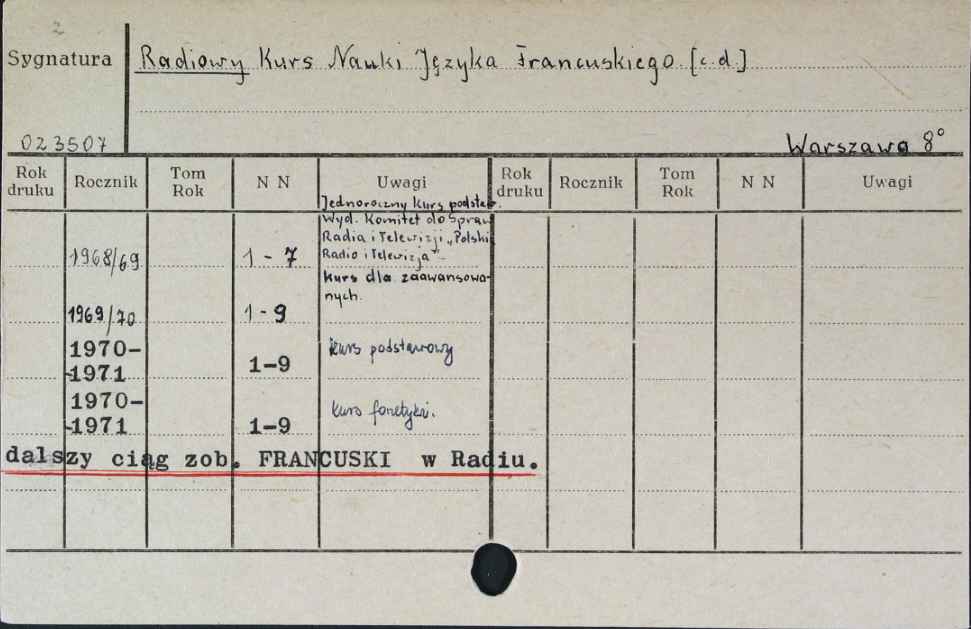 2
Sygnatura
Radiowy Kurs Nauki Języka Francuskiego [c.d.]
023507
Warszawa 8°
Rok druku Rocznik Tom Rok N N Uwagi Rok druku Rocznik Tom Rok N N Uwagi
Jednoroczny kurs podstaw.
Wyd. Komitet do Spraw
Radia i Telewizji „Polskie
1968/69 1 - 7 Radio i Telewizja"
Kurs dla zaawansowa-
nych.
1969/70 1 - 9
1970-
-1971 1-9 kurs podstawowy
1970-
-1971 1-9 kurs fonetyki.
dalszy ciąg zob. FRANCUSKI w Radiu.